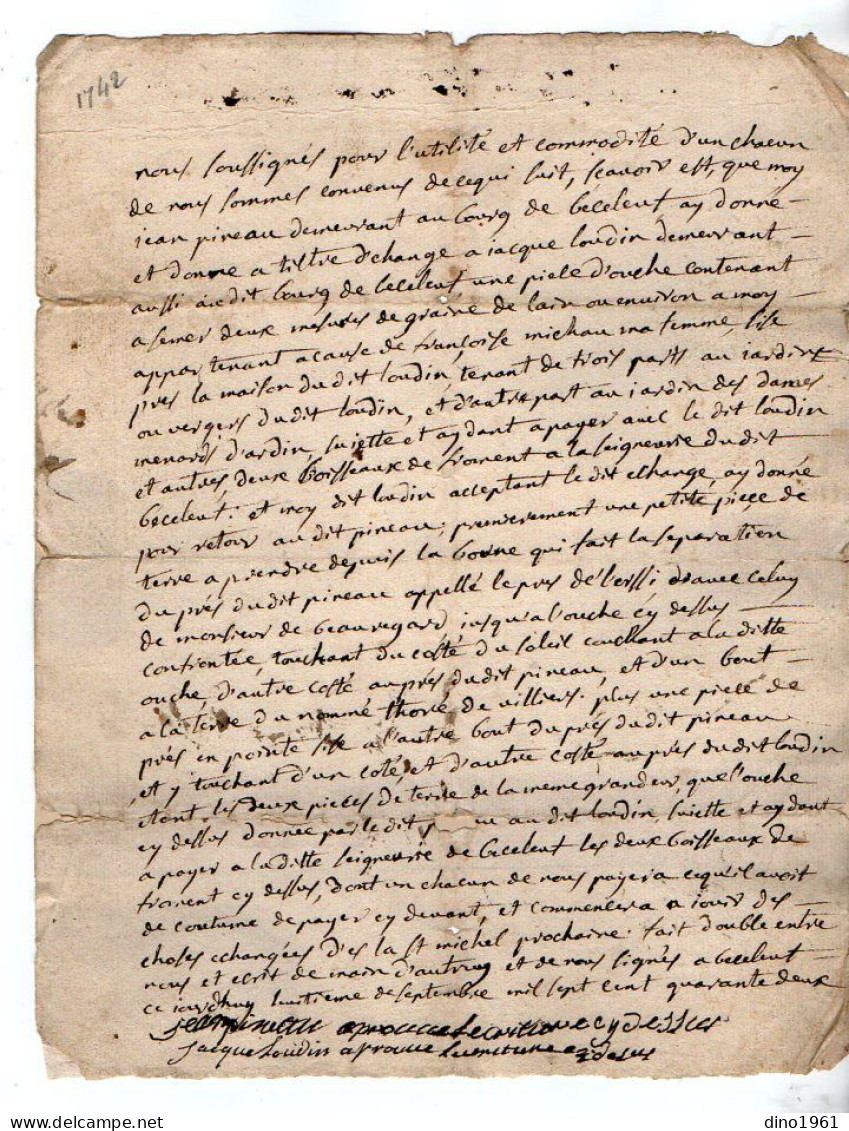 1742
nous soussignés pour l'utilité et commodité d'un chacun
de nous sommes convenus de ce qui suit, sçavoir est, que moy
jean pineau demeurant au bourg de béceleuf, ay donné
et donne a tiltre d'échange a jacque loudin demeurant
aussi audit bourg de beceleuf une piece d'ouche contenant
a semer deux mesures de graine de lain ou environ a moy
appartenant a cause de françoise michau ma femme, sise
pres la maison du dit loudin, tenant de trois parts au jardin
ou vergers du dit loudin, et d'autre part au jardin des dames
menards d'ardin, sujette et aydant a payer avec le dit loudin
et autres, deux boisseaux de froment a la seigneurie du dit
beceleuf: et moy dit loudin acceptant le dit echange, ay donné
pour retour au dit pineau, premierement une petite piece de
terre a prendre depuis la borne qui fait la separation
du prés du dit pineau appellé le pres de l'erssi d'avec celuy
de monsieur de beauregard jusqu'a l'ouche cy dessus
confrontée, touchant du costé du soleil couchant a la ditte
ouche, d'autre costé au prés du dit pineau, et d'un bout
a la terre du nommé thoré de villiers. plus une piece de
prés en pointe sise a l'autre bout du prés du dit pineau
et y touchant d'un coté, et d'autre costé au prés du dit loudin
etant les deux pieces de terre de la meme grandeur, que l'ouche
cy dessus donnée par le dit au dit loudin, sujette et aydant
a payer a la ditte seigneurie de beceleuf les deux boisseaux de
froment cy dessus, dont un chacun de nous payera ce qu'il avoit
de coutume de payer cy devant, et commencera a jouir des
choses echangées d'es la st michel prochaine. fait double entre
nous et ecrit de main d'autruy et de nous signés a beceleuf
ce jourdhuy huitieme de septembre mil sept cent quarante deux
jean pineau aprouve lecriture cy dessus
jacque loudin aprouve lecriture cy desus
dino1961